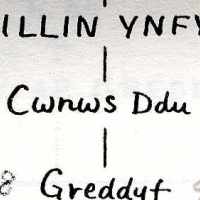 ILLIN YNFY
Cwnws Ddu
8 Greddyf